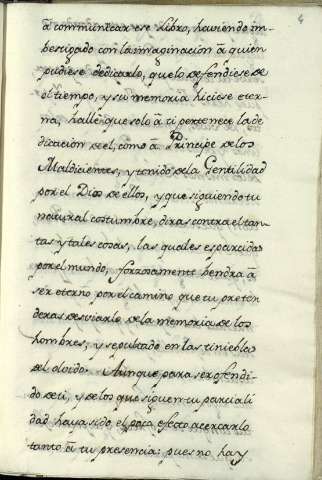 4
à communicar ese libro, haviendo in-
bestigado con la imaginacion à quien
pudiese dedicarlo, que lo defendiese de
el tiempo, y su memoria hiciese eter-
na, hallè que solo à ti pertenece la de
dicacion de el, como à Principe de los
Maldicientes, y tenido de la Gentilidad
por el Dios de ellos, y que siguiendo tu
natural costumbre, diras contra el tan-
tas y tales cosas, las quales esparcidas
por el mundo, forzosamente bendra à
ser eterno por el camino que tu preten
deras desviarle de la memoria de los
hombres, y sepultado en las tinieblas
del olvido. Aunque para ser ofendi-
do de ti, y de los que siguen tu parciali
dad haya sido el poco efecto acercarlo
tanto à tu presencia: pues no hay